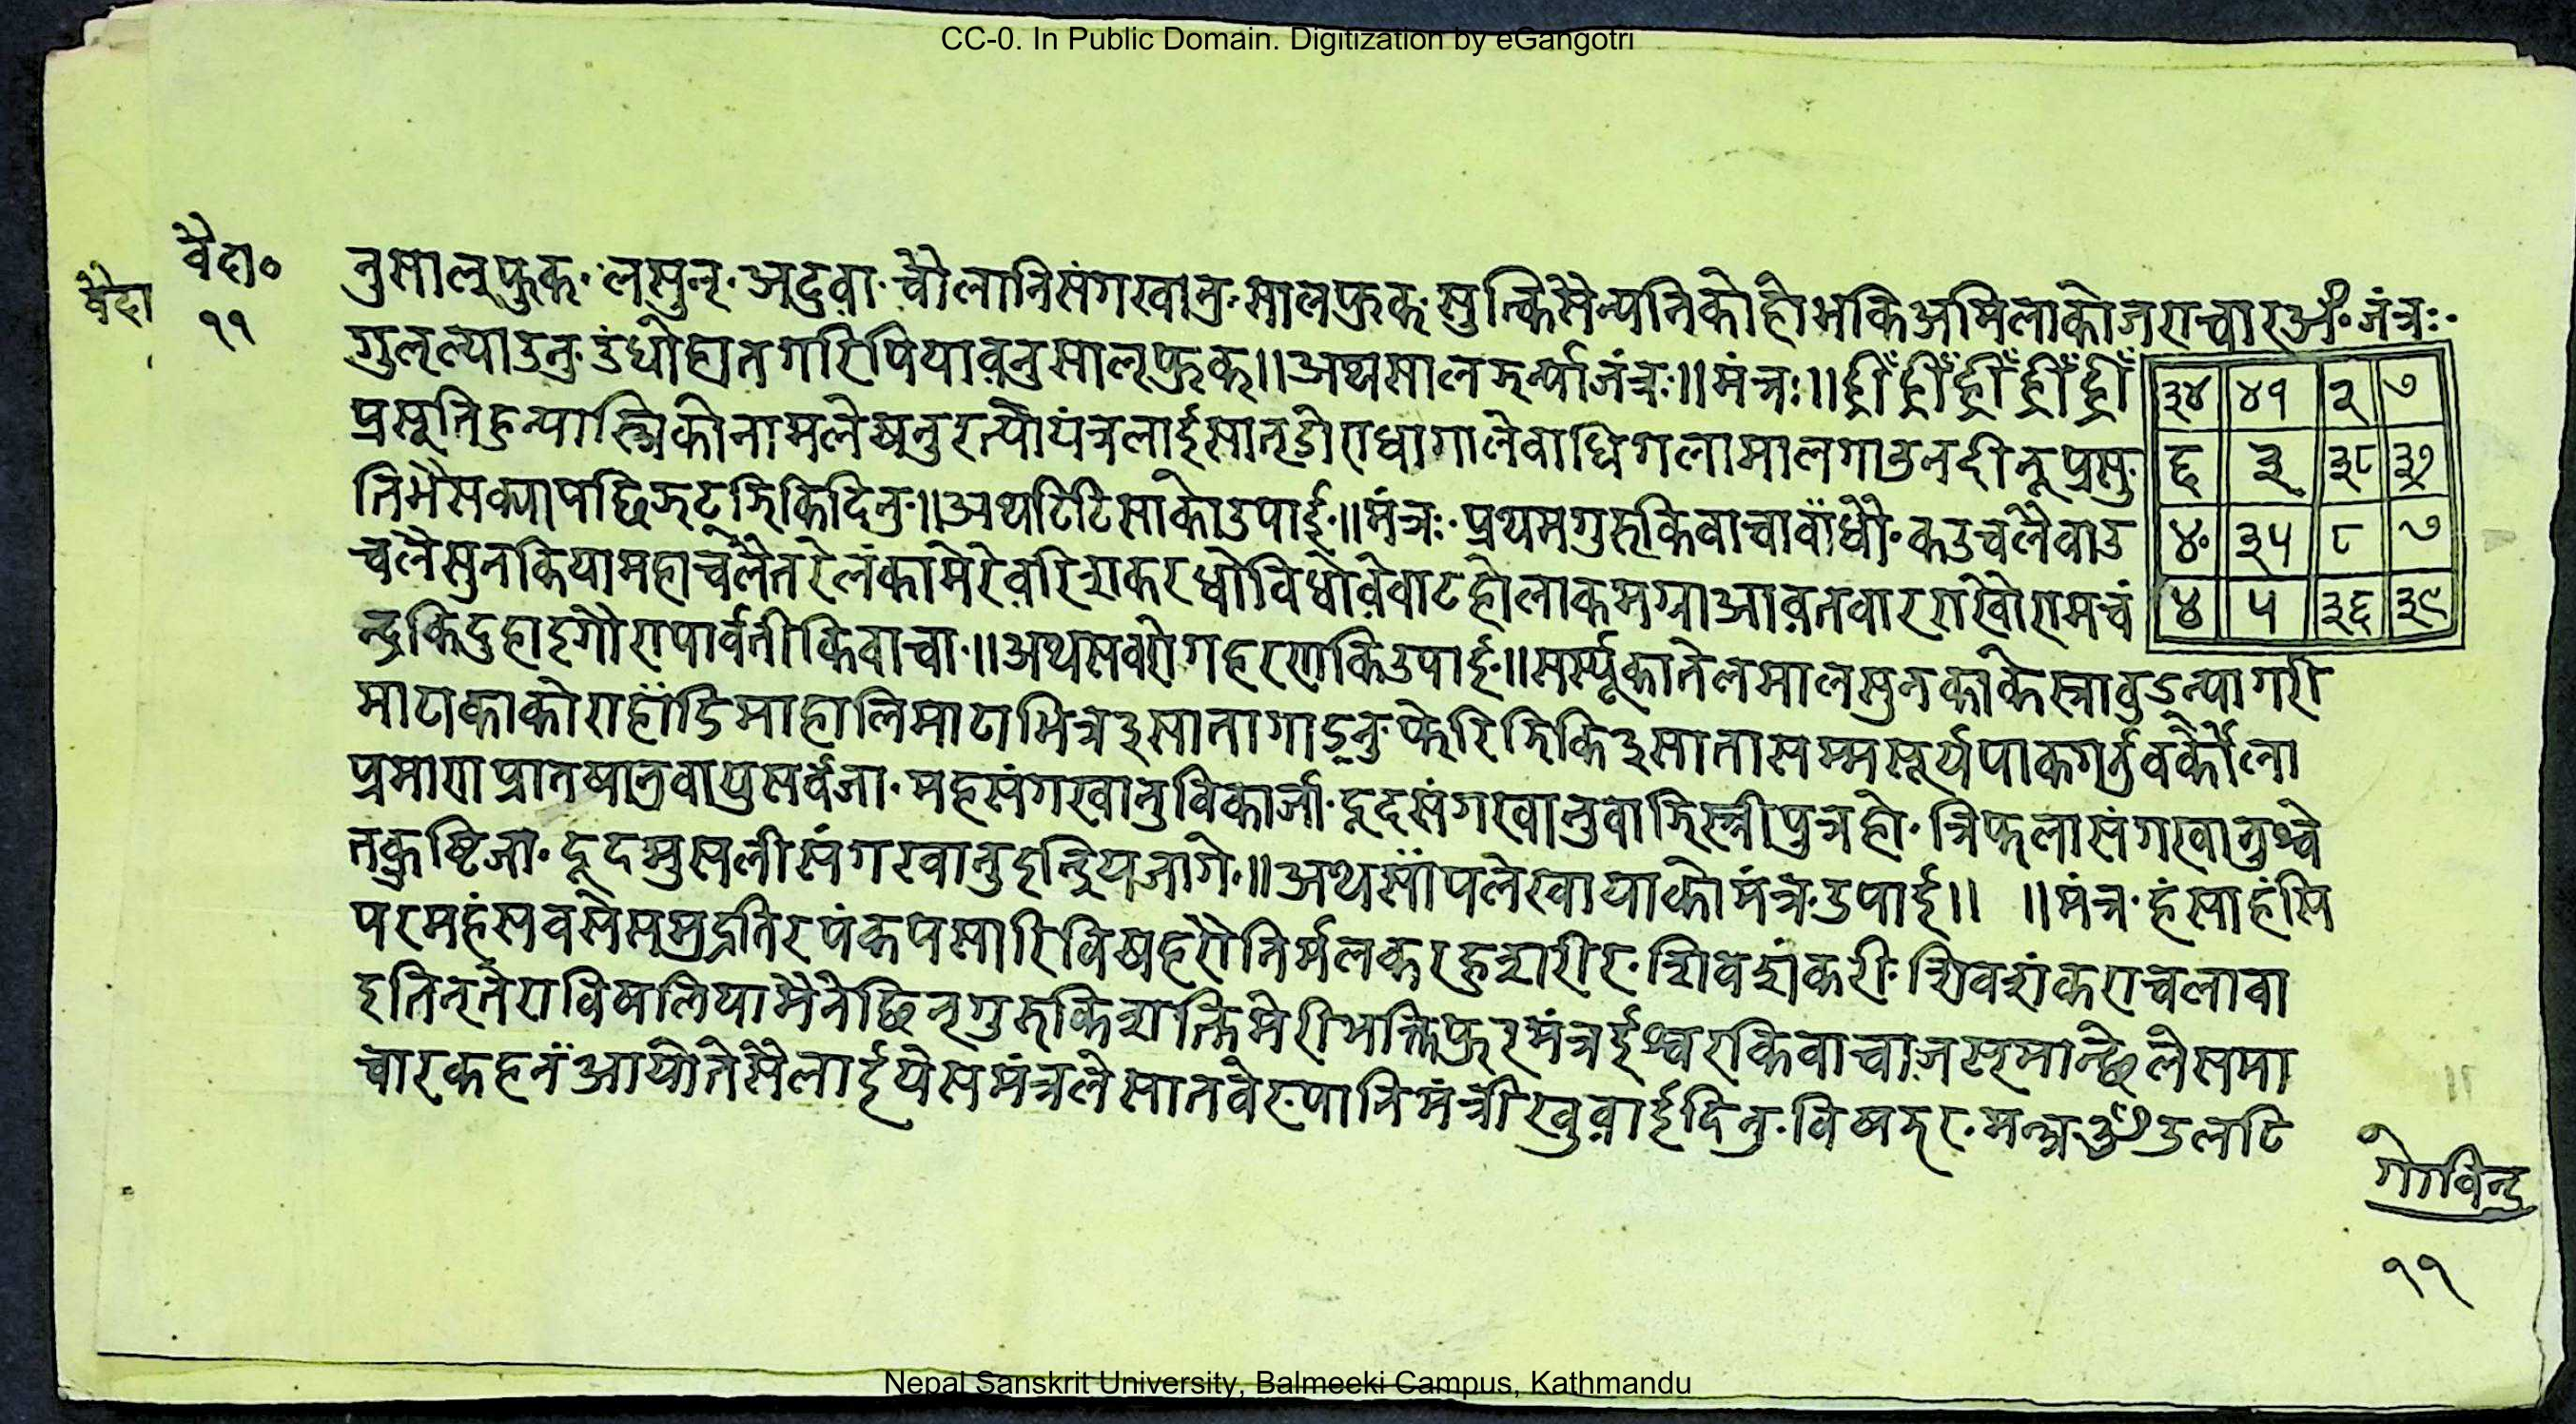 CC-0. In Public Domain. Digitization by eGangotri
वैद्य०
वैद्य
११
नु सालफुक्. लसुन्. अदुवा. चौलानिसंगखानु. सालफुक्. सुत्किसैन्यनिकोहो भकिअमिलाकोजराचारअौं. जंत्रः.
गुलल्याउनु. उंधोह्रातगरिपियावनुसालफुक्॥ अथसालझर्न्याजंत्रः॥ मंत्रः॥ ह्रीँ ह्रीँ ह्रीँ ह्रीँ ह्रीँ
प्रसूतिहुन्यास्त्रिकोनामलेष्नुरत्योयंत्रलाईसातडोराधागालेवाधिगलामालगाउनदीनूप्रसु
तिभैसक्यापछिझट्झिकिदिनु.॥ अथटिटिसाकोउपाई.॥ मंत्रः. प्रथमगुरुकिवाचावाँधौ. कउचलैवाउ
चलैसुनकियामहाचलैतरेलंकामेरेवरिशकरधोविधोवेवाटहोलाकमग्नाआवतवारराखोरामचं
न्द्रकिदुहाइगौरापार्वतीकिवाचा.॥ अथसवरोगहरणकिउपाई.॥ सर्स्यूकातेलमालसुनकाकेस्त्रावुडन्यागरी
माटाकाकोराहाँडिमाहालिमाटाभित्र३सातागाड्नु. फेरिझिकि३सातासम्मसूर्यपाकगर्नुवकौला
प्रमाणप्रातषानुवायुसर्वजा. महसंगखानुविकार्जा. दूदसंगखानुवाझिस्त्रीपुत्रहो. त्रिफलासंगखानुश्वे
तकुष्टिजा. दूदमुसलीसंगखानुइन्द्रियजागे.॥ अथसाँपलेखायाकोमंत्र. उपाई॥ ॥ मंत्र. हंसाहंसि
परमहंसवसैसमुद्रतिरपंकपसारिविषहरौनिर्मलकरहुशरीर. शिवशंकरी. शिवशंकराचलावा
इतिनतेराविषलियामैनेछिनगुरुकिशक्तिमेरीभक्तिफुरमंत्रईश्वरकिवाचाजसमान्छेलेसमा
चारकहनँआयोतेसैलाईयेसमंत्रलेसातवेरपानिमंत्रीखुवाईदिनु. विषझर. मन्त्रॐउलटि
३४ ४१ २ ७
६ ३ ३८ ३७
४० ३५ ८ ७
४ ५ ३६ ३९
गोविन्द
११
Nepal Sanskrit University, Balmeeki Campus, Kathmandu